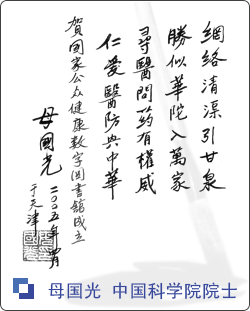 網络清渠引甘泉
勝似華陀入萬家
尋醫問药有權威
仁愛醫防興中華
賀国家公众健康数字图書館成立
母國光
二〇〇五年四月
于天津
母国光 中国科学院院士